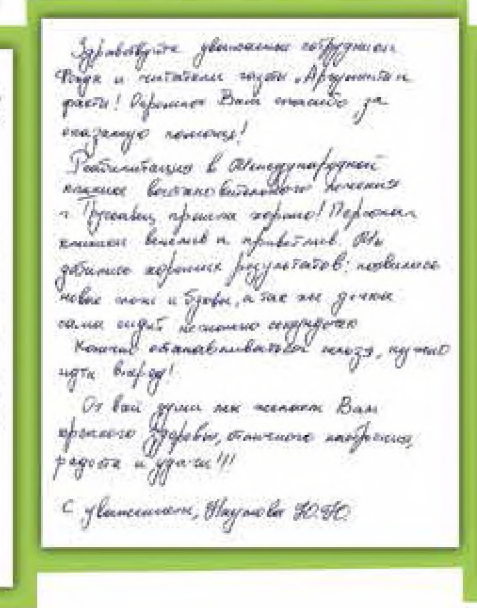 Здравствуйте уважаемые сотрудники
Фонда и читатели газеты „Аргументы и
факты! Огромное Вам спасибо за
оказанную помощь!
Реабилитация в Международной
клинике восстановительного лечения
г. Трускавец прошла хорошо! Персонал
клиники вежлив и приветлив. Мы
добились хороших результатов: появились
новые слоги и буквы, а так же дочка
сама сидит несколько секунд
Конечно останавливаться нельзя, нужно
идти вперед!
От всей души мы желаем Вам
крепкого здоровья, отличного настроения,
радости и удачи!!!
С уважением, Наумова Ю.Ю.